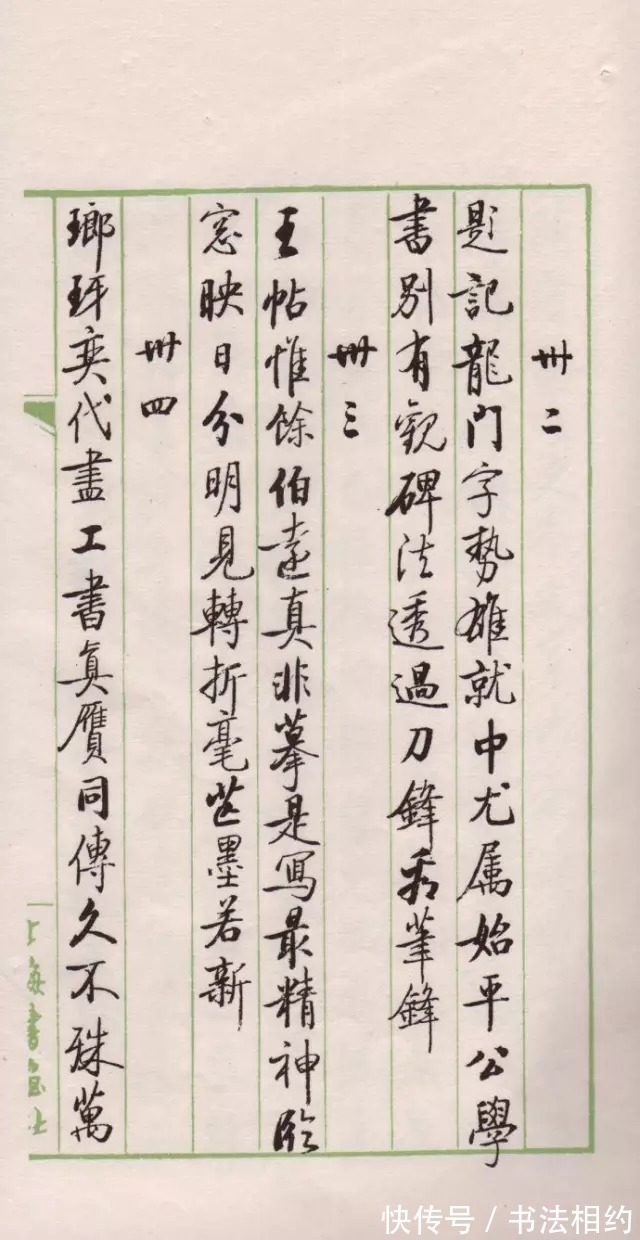 卅二
題記龍門字勢雄就中尤属始平公學
書别有觀碑法透過刀鋒看筆鋒
卅三
王帖惟餘伯遠真非摹是寫最精神臨
窓映日分明見轉折毫芒墨若新
卅四
瑯玡奕代盡工書真贗同傳久不殊萬
上海書畫社
快传号/书法相约